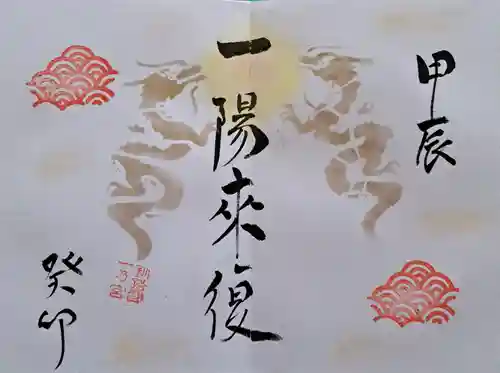 甲辰
一陽來復
癸卯